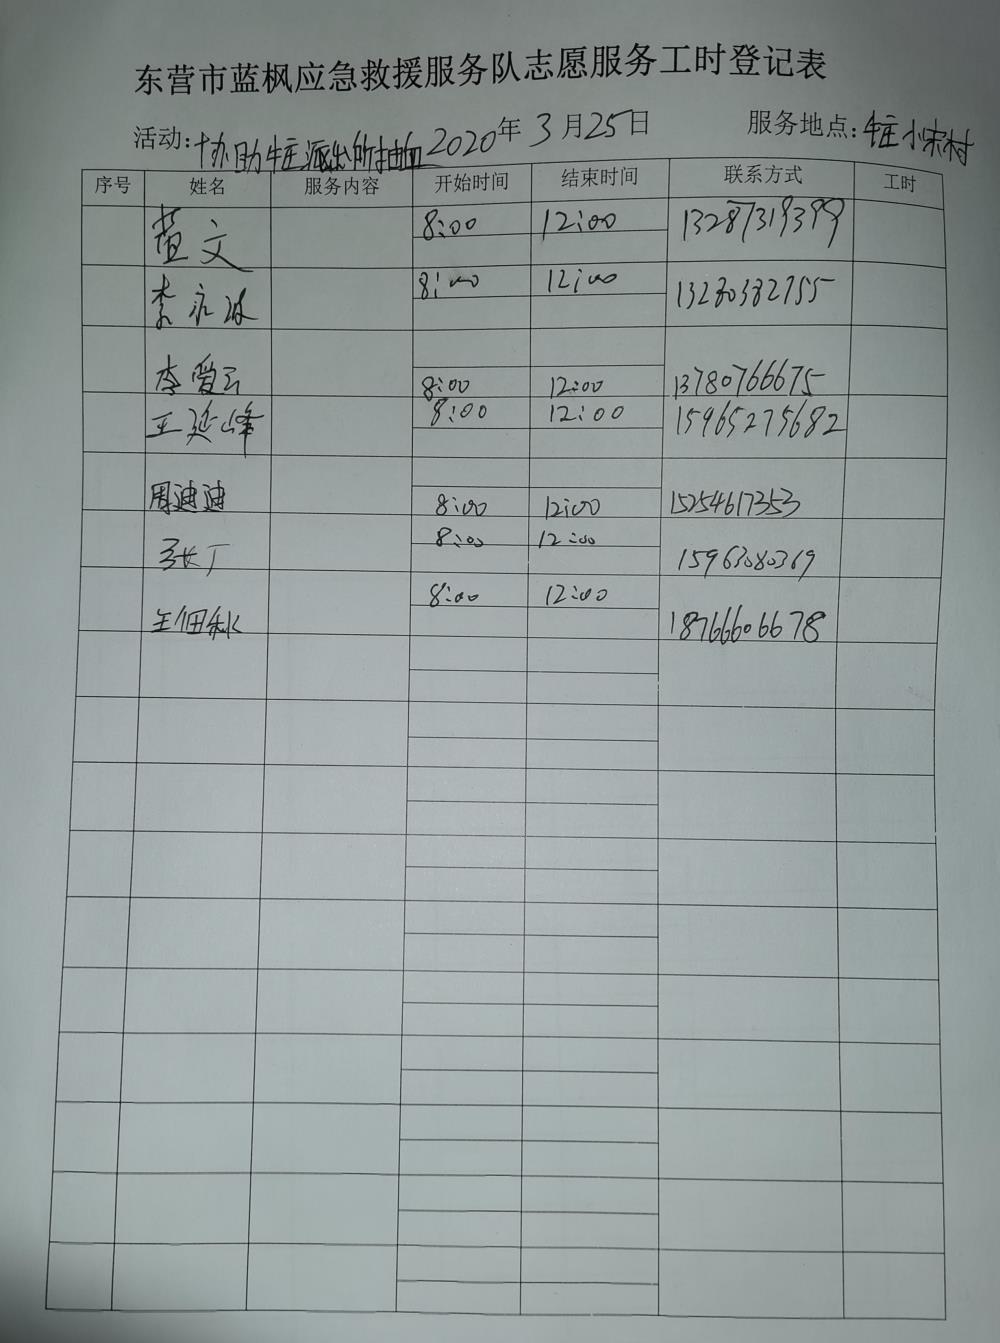 东营市蓝枫应急救援服务队志愿服务工时登记表
活动: 协助牛庄派出所抽血 2020年3月25日 服务地点: 牛庄小宋村
序号 姓名 服务内容 开始时间 结束时间 联系方式 工时
文 8:00 12:00 13287319399
李永冰 8:00 12:00 13280382755
李爱云 8:00 12:00 13780766675
王延峰 8:00 12:00 15965275682
周迪迪 8:00 12:00 15254617353
张丁 8:00 12:00 15963080369
王佃秋 8:00 12:00 18766606678